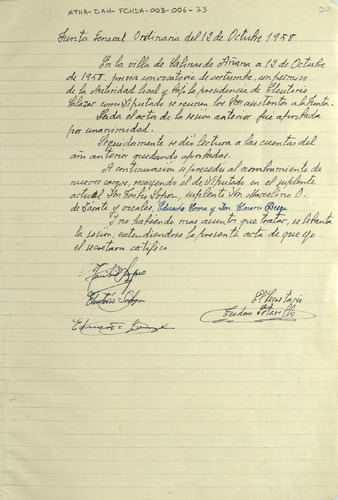 ATHA-DAH-FCHSA-003-006-33
30
Junta General Ordinaria del 12 de Octubre 1958
En la villa de Salinas de Añana a 12 de Octubre
de 1958, previa convocatoria de costumbre, con permiso
de la Autoridad local y bajo la presidencia de Eleuterio
Salazar como Diputado se reunen los Sres asistentes a la Junta.
Leida el acta de la sesion anterior fue aprobada
por unanimidad.
Seguidamente se dió lectura a las cuentas del
año anterior quedando aprobadas.
A continuación se procedió al nombramiento de
nuevos cargos, recayendo el de Diputado en el suplente
actual Don suplente Don Marcelino O.
de Zárate y vocales, Eduardo y Don
Y no habiendo mas asuntos que tratar, se levanta
la sesión, extendiendose la presente acta de que yo
el secretario certifico
El Secretario
Teodoro